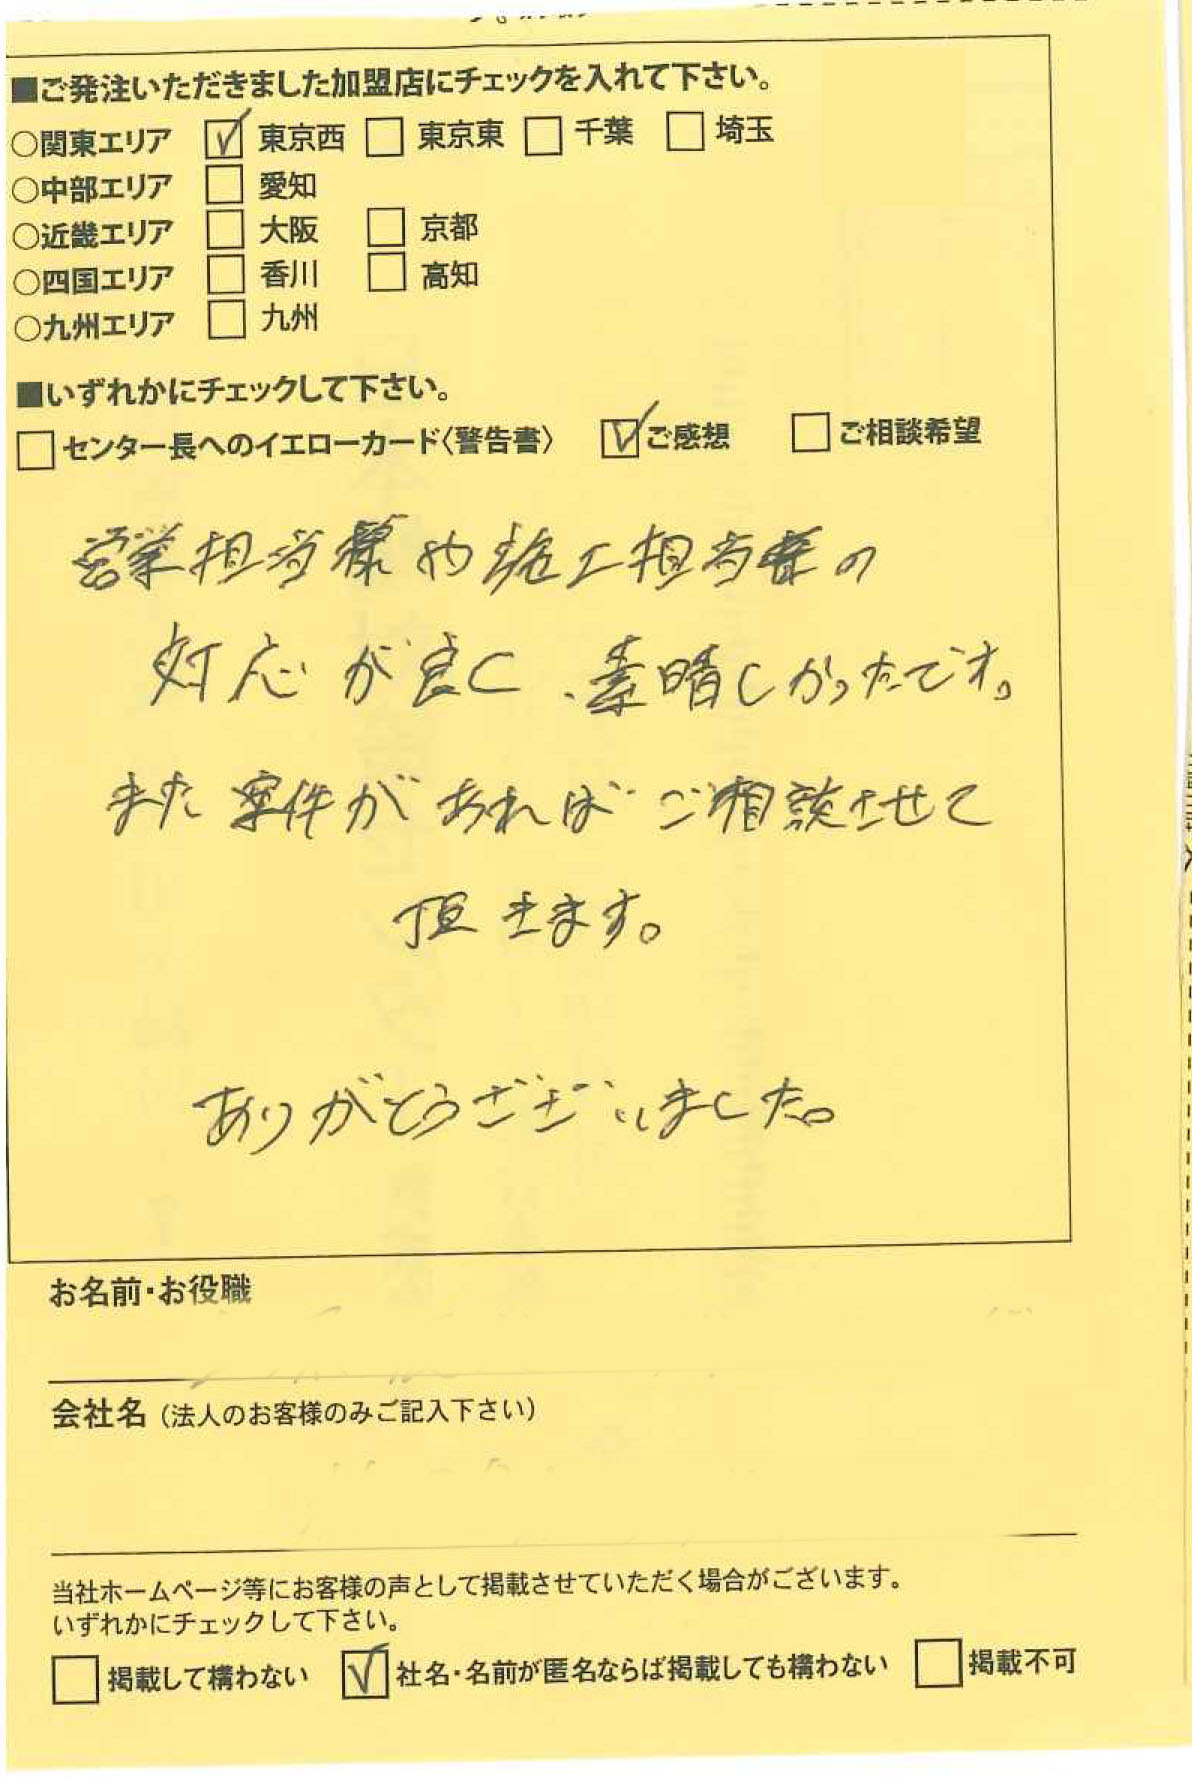 ■ご発注いただきました加盟店にチェックを入れて下さい。
○関東エリア ☑ 東京西 □ 東京東 □ 千葉 □ 埼玉
○中部エリア □ 愛知
○近畿エリア □ 大阪 □ 京都
○四国エリア □ 香川 □ 高知
○九州エリア □ 九州
■いずれかにチェックして下さい。
□ センター長へのイエローカード〈警告書〉 ☑ ご感想 □ ご相談希望
営業担当様や施工担当様の
対応が良く、素晴しかったです。
また案件があればご相談させて
頂きます。
ありがとうございました。
お名前・お役職
会社名（法人のお客様のみご記入下さい）
当社ホームページ等にお客様の声として掲載させていただく場合がございます。
いずれかにチェックして下さい。
□ 掲載して構わない ☑ 社名・名前が匿名ならば掲載しても構わない □ 掲載不可